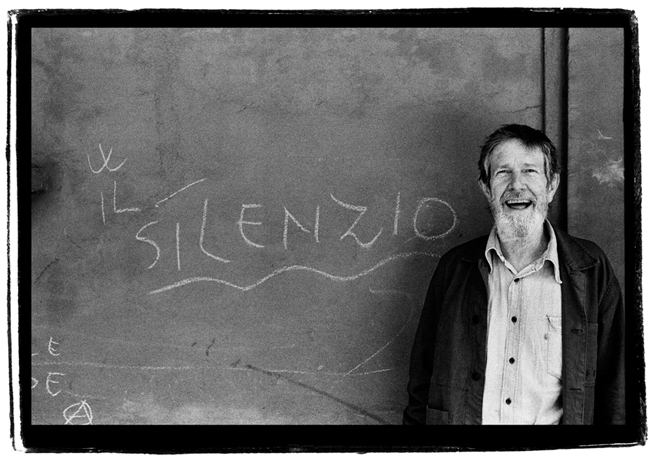 W
IL
SILENZIO
LE
DE
A